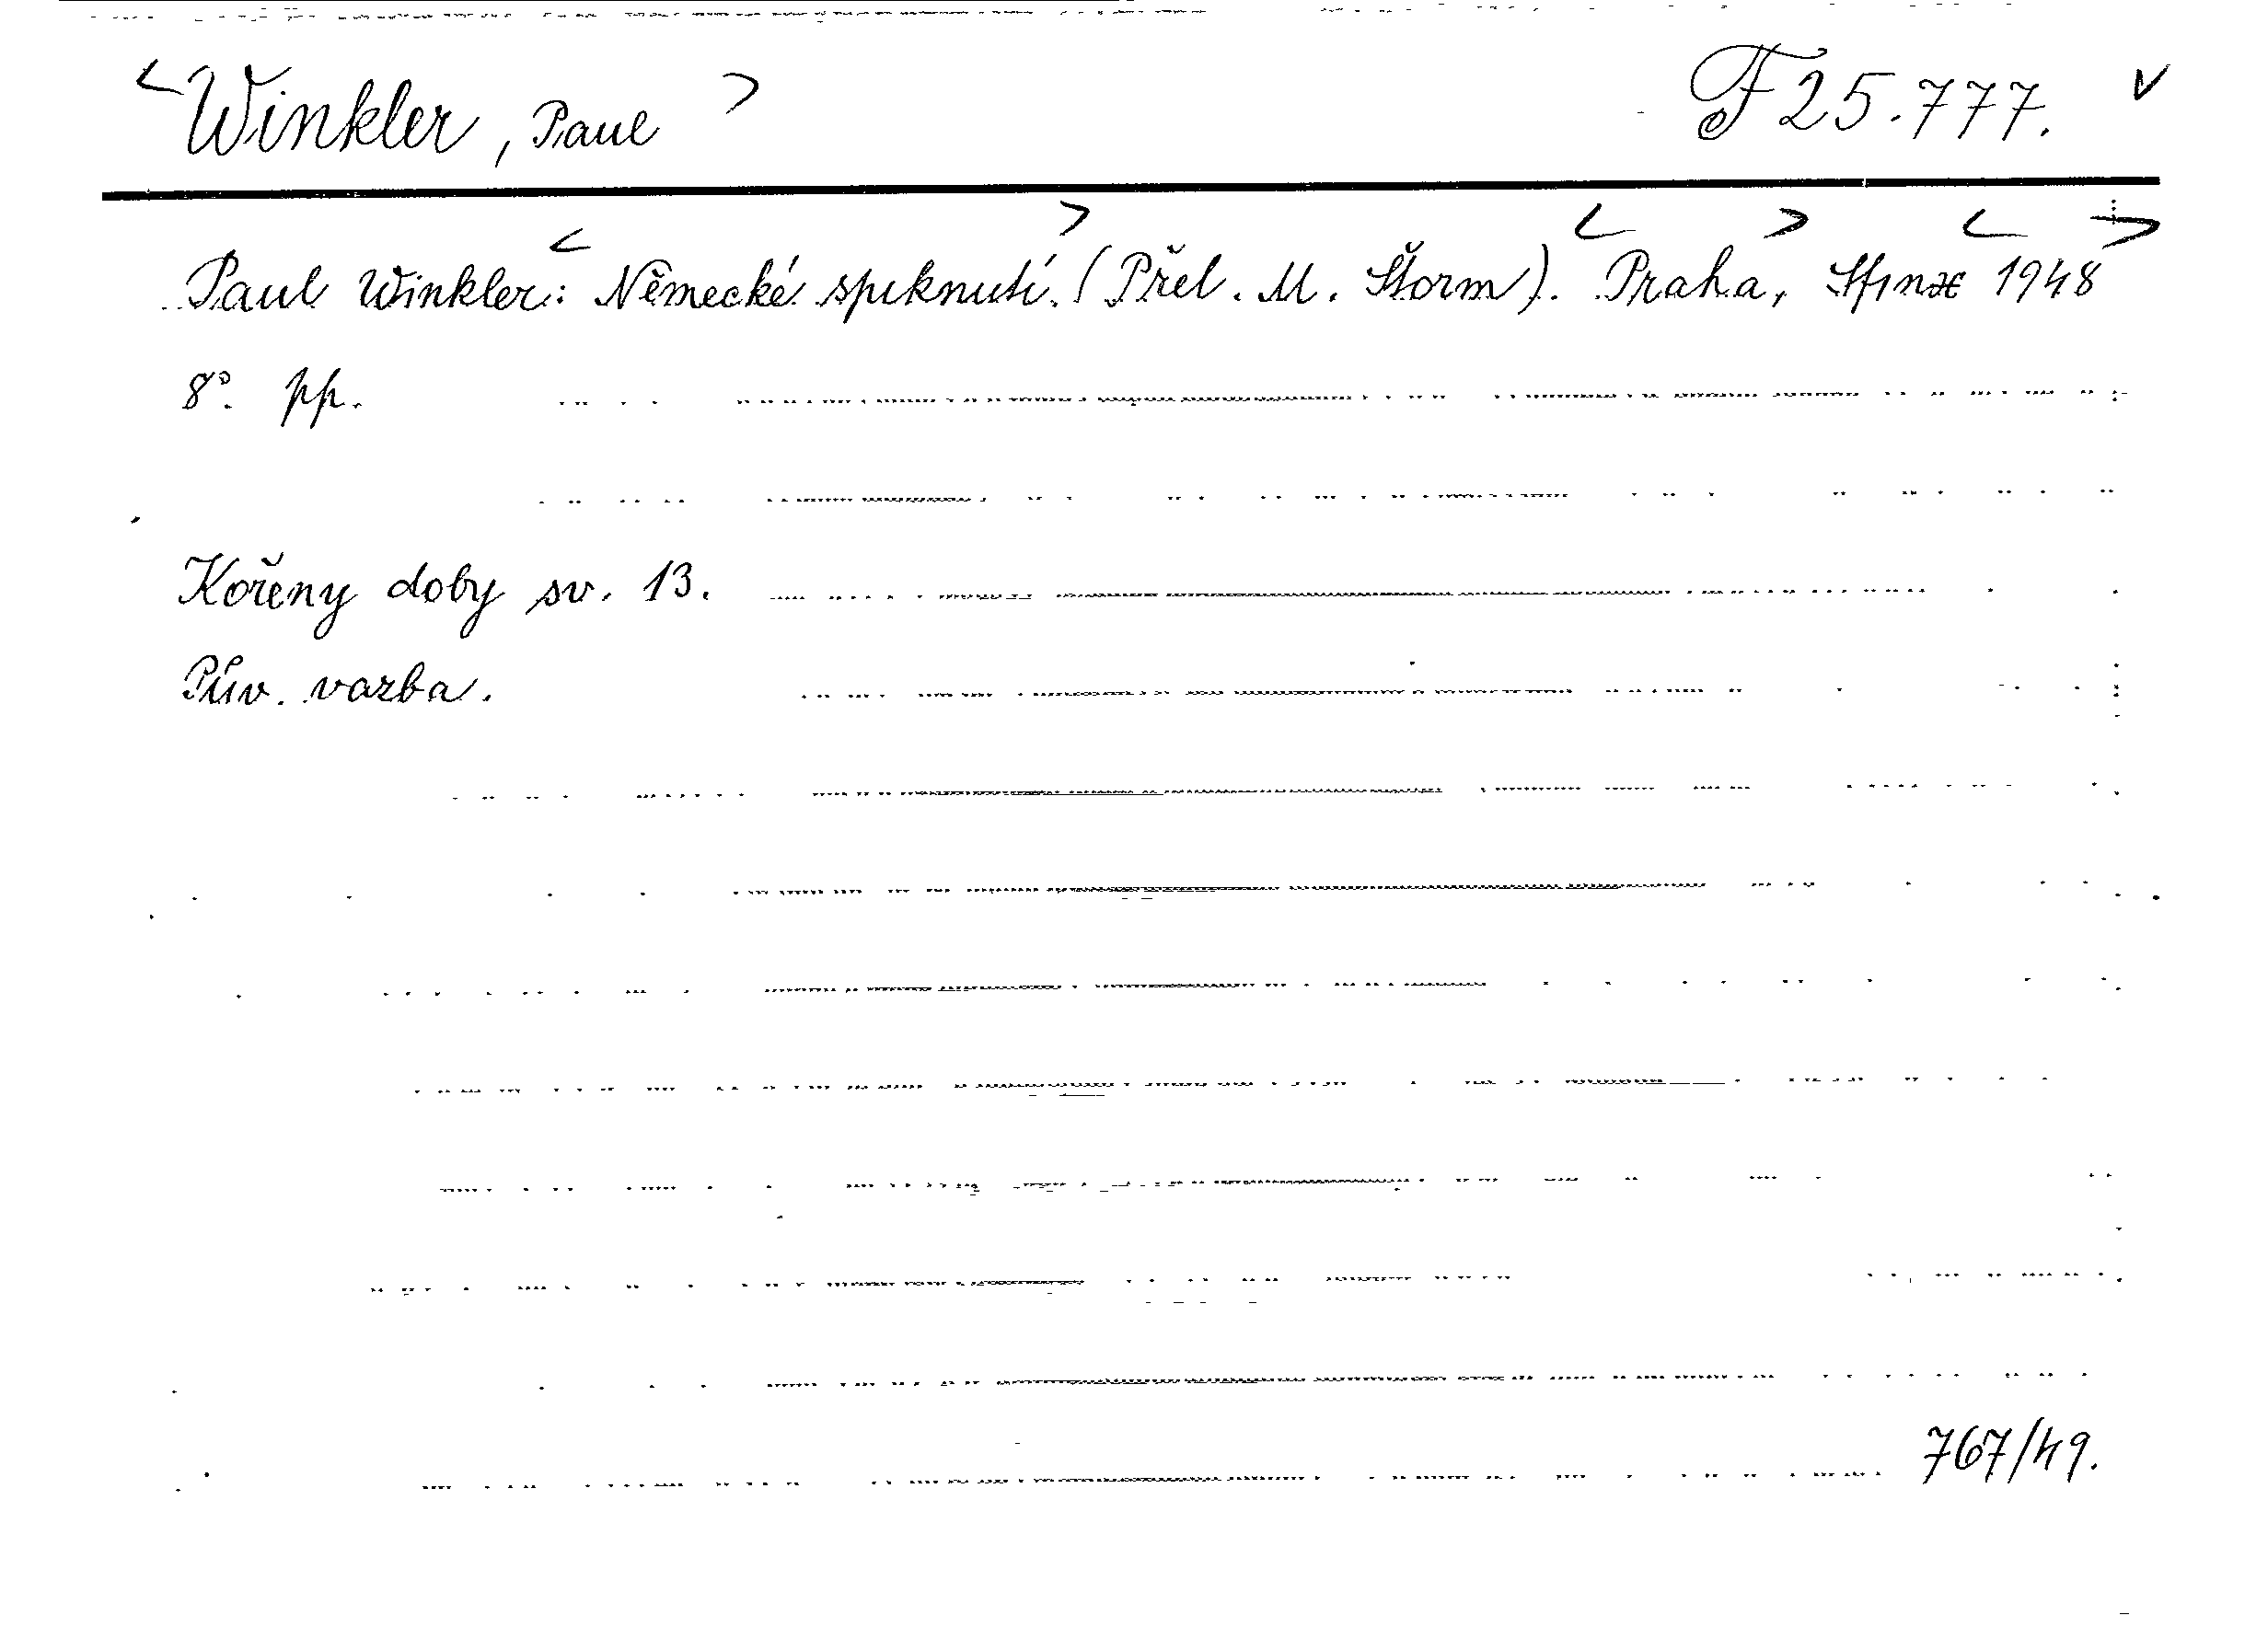 <Winkler, Paul> F 25.777. v
Paul Winkler: <Německé spiknutí.> (Přel. M. Štorm). <Praha>, Sfinx <1948>
8°. pp.
Kořeny doby sv. 13.
Pův. vazba.
767/49.